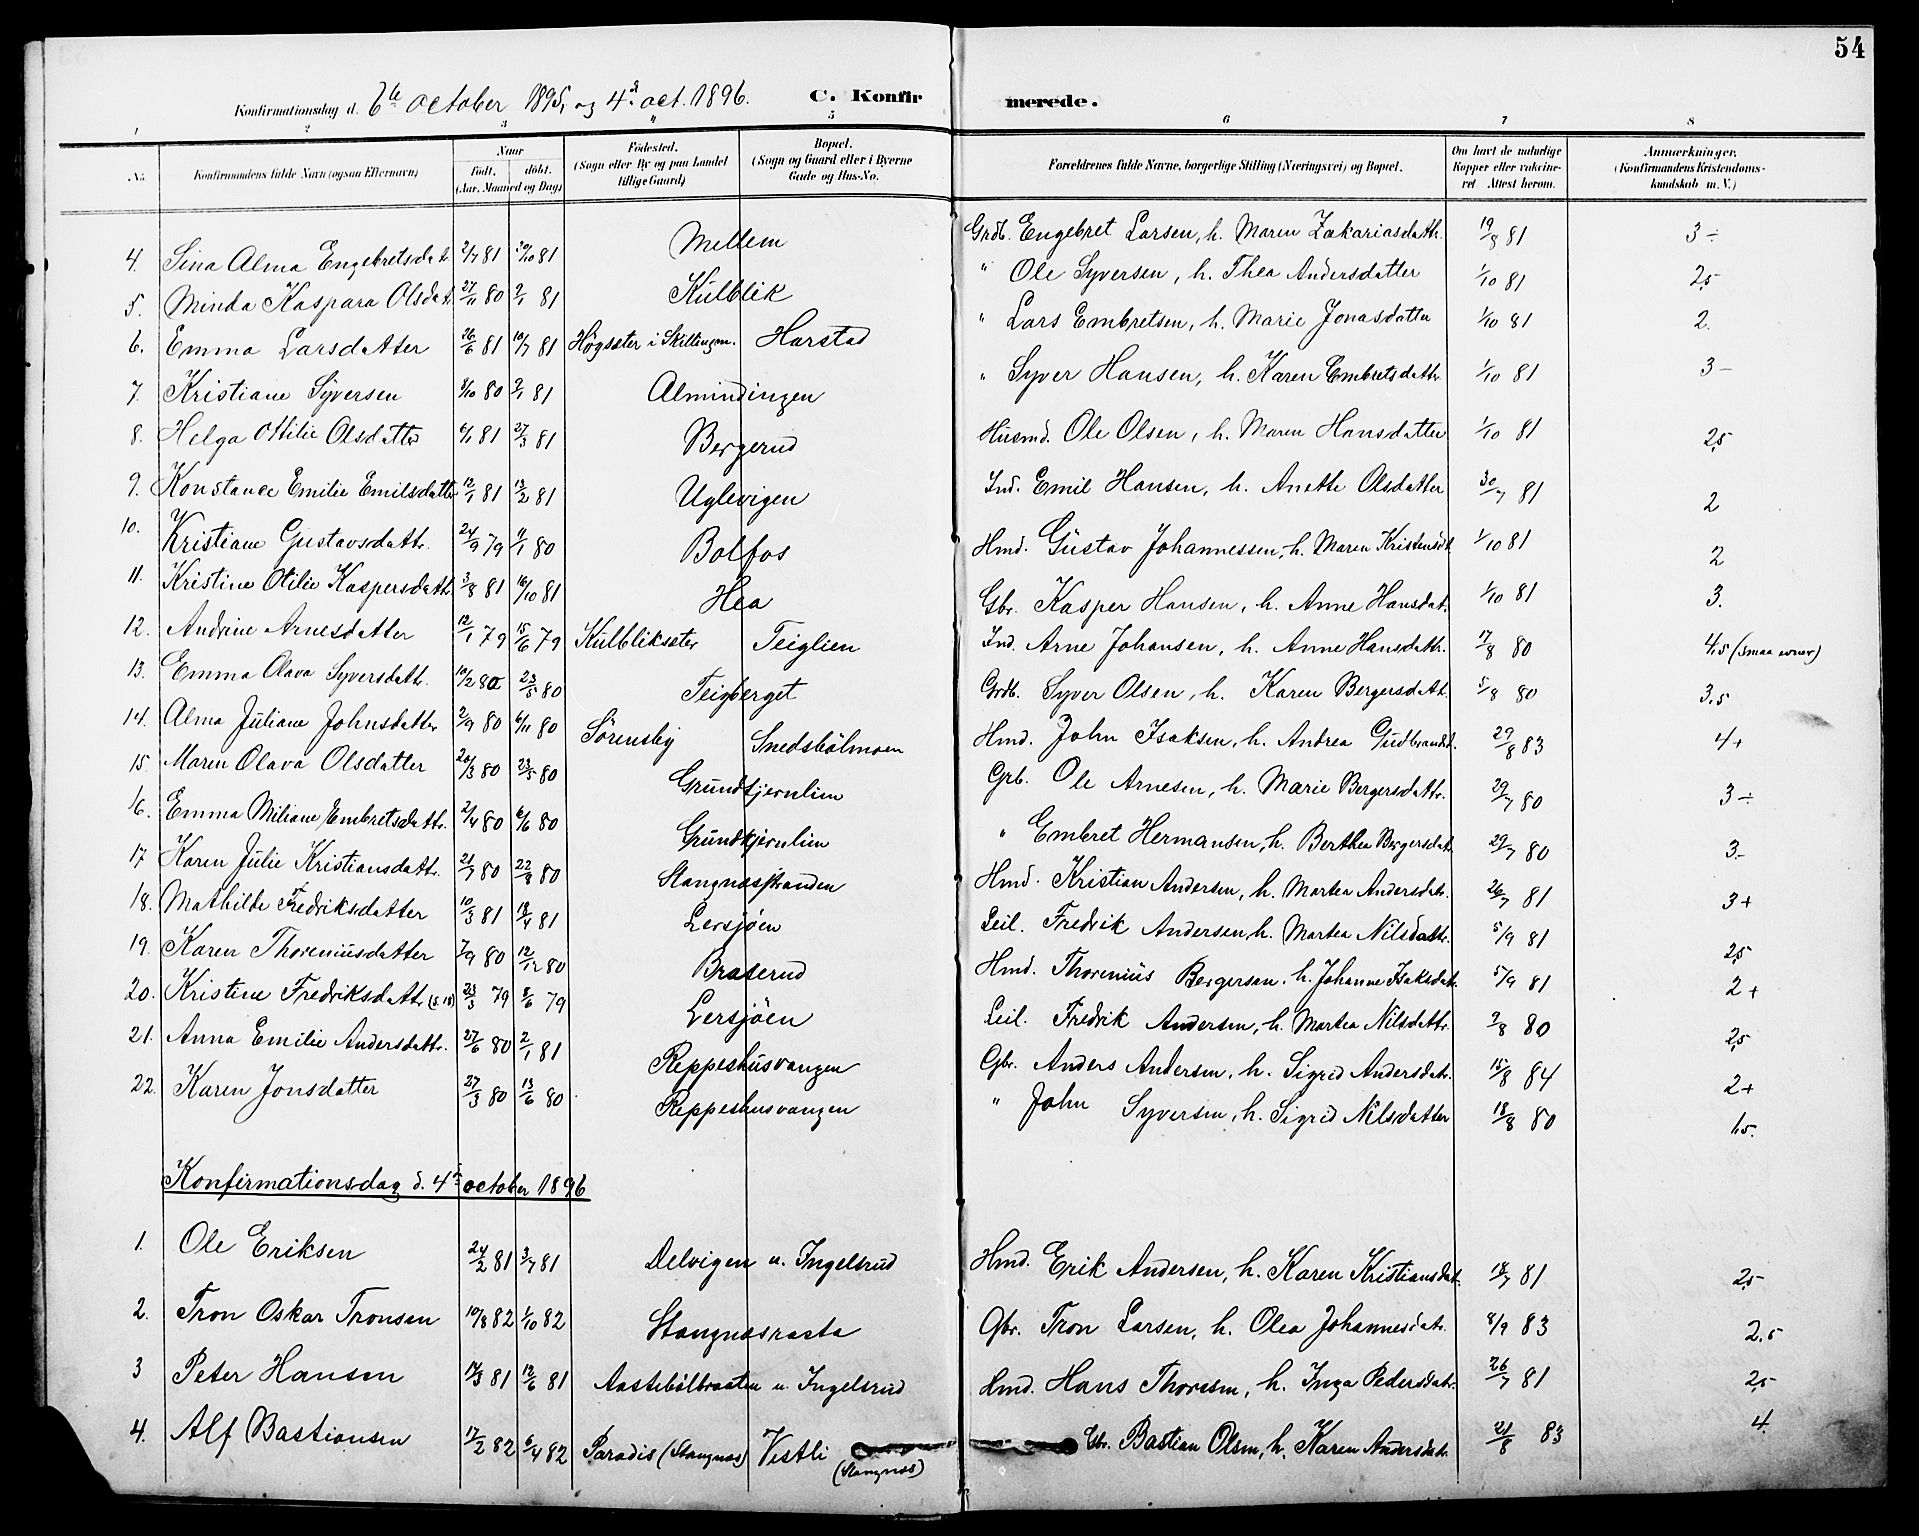 54
Konfirmationsdag d. 6te october 1895, og 4de oct. 1896. C. Konfirmerede.
1 2 3 4 5 6 7 8
No. Konfirmandens fulde Navn (ogsaa Efternavn) Naar født. døbt. (Aar, Maaned og Dag) Fødested. (Sogn eller By og paa Landet tillige Gaard) Bopæl. (Sogn og Gaard eller i Byerne Gade og Hus-No. Forældrenes fulde Navne, borgerlige Stilling (Næringsvei) og Bopæl. Om havt de naturlige Kopper eller vaccineret Attest herom. Anmærkninger. (Konfirmandens Kristendomskundskab m. V.)
4. Sina Alma Engebretsdat. 2/7 81 30/10 81 Mellem Grdb. Engebret Larsen, h. Maren Zakariasdattr. 19/8 81 3÷
5. Minda Kaspara Olsdat. 27/11 80 2/1 81 Kulblik " Ole Syversen, h. Thea Andersdatter 1/10 81 2,5
6. Emma Larsdatter 26/6 81 10/7 81 Høgsæter i Skillingen. Harstad " Lars Embretsen, h. Marie Jonasdatter 1/10 81 2.
7. Kristiane Syversen 8/10 80 2/1 81 Almindingen " Syver Hansen, h. Karen Embretsdattr. 1/10 81 3-
8. Helga Ottilie Olsdatter 6/1 81 27/3 81 Bergerud Husmd. Ole Olsen, h. Maren Hansdatter 1/10 81 2,5
9. Konstance Emilie Emilsdatter 12/1 81 13/2 81 Uglevigen Ind. Emil Hansen, h. Anette Olsdatter 30/7 81 2
10. Kristiane Gustavsdattr. 24/9 79 11/1 80 Bolfos Hmd. Gustav Johannessen, h. Maren Kristensdt. 1/10 81 2
11. Kristine Otilie Kaspersdattr. 3/8 81 16/10 81 Hea Gbr. Kasper Hansen, h. Anne Hansdat. 1/10 81 3.
12. Andrine Arnesdatter 12/1 79 15/6 79 Kulbliksæter Teiglien Ind. Arne Johansen, h. Anne Hansdattr. 17/8 80 4,5 (smaa evner)
13. Emma Olava Syversdattr. 10/2 80 23/5 80 Teigberget Grdb. Syver Olsen, h. Karen Bergersdatt. 5/8 80 3,5
14. Alma Juliane Johnsdatter 2/9 80 6/11 80 Sørensby Snedsbølmoen Hmd. John Isaksen, h. Andrea Gudbrandsd. 29/8 83 4+
15. Maren Olava Olsdatter 20/3 80 23/5 80 Grundtjernlien Grb. Ole Arnesen, h. Marie Bergersdattr. 29/7 80 3÷
16. Emma Miliane Embretsdattr. 21/4 80 6/6 80 Grundtjernlien " Embret Hermansen, h. Berthea Bergersdat. 29/7 80 3-
17 Karen Julie Kristiansdattr. 21/7 80 22/8 80 Stangnæsstranden Hmd. Kristian Andersen, h. Martea Andersdatr. 26/7 81 3+
18. Mathilde Fredriksdatter 10/3 81 18/4 81 Lersjøen Leil. Fredrik Andersen, h. Martea Nilsdattr. 5/9 81 2,5
19. Karen Thoreniusdatter 7/9 80 12/12 80 Braserud Hmd. Thorenius Bergersen, h. Johanne Isaksdat. 5/9 81 2+
20. Kristine Fredriksdattr (s. 18) 23/3 79 8/6 79 Lersjöen Leil. Fredrik Andersen, h. Martea Nilsdattr. 2/8 80 2,5
21. Anna Emilie Andersdattr. 27/6 80 2/1 81 Reppeshusvangen Gbr. Anders Andersen, h. Sigrid Andersdatr. 15/8 84 2+
22. Karen Jonsdatter 27/3 80 13/6 80 Reppeshusvangen " John Syversen, h. Sigrid Nilsdatter 18/8 80 1,5.
Konfirmationsdag d. 4de october 1896
1. Ole Eriksen 24/2 81 3/7 81 Delvigen u. Ingelsrud Hmd. Erik Andersen, h. Karen Kristiansdat. 18/7 81 2,5
2. Tron Oskar Tronsen 10/8 82 1/10 82 Stangnæsrasta Gbr. Tron Larsen, h. Olea Johannesdatr. 8/9 83 2,5
3 Peter Hansen 17/3 81 12/6 81 Aastebölbraaten u. Ingelsrud Hmd. Hans Thoresen, h. Inga Pedersdatr. 26/7 81 2,5
4. Alf Bastiansen 17/2 82 6/4 82 Paradis (Stangnæs) Vestli (Stangnæs) Gbr. Bastian Olsen, h. Karen Andersdatr. 21/8 83 4.